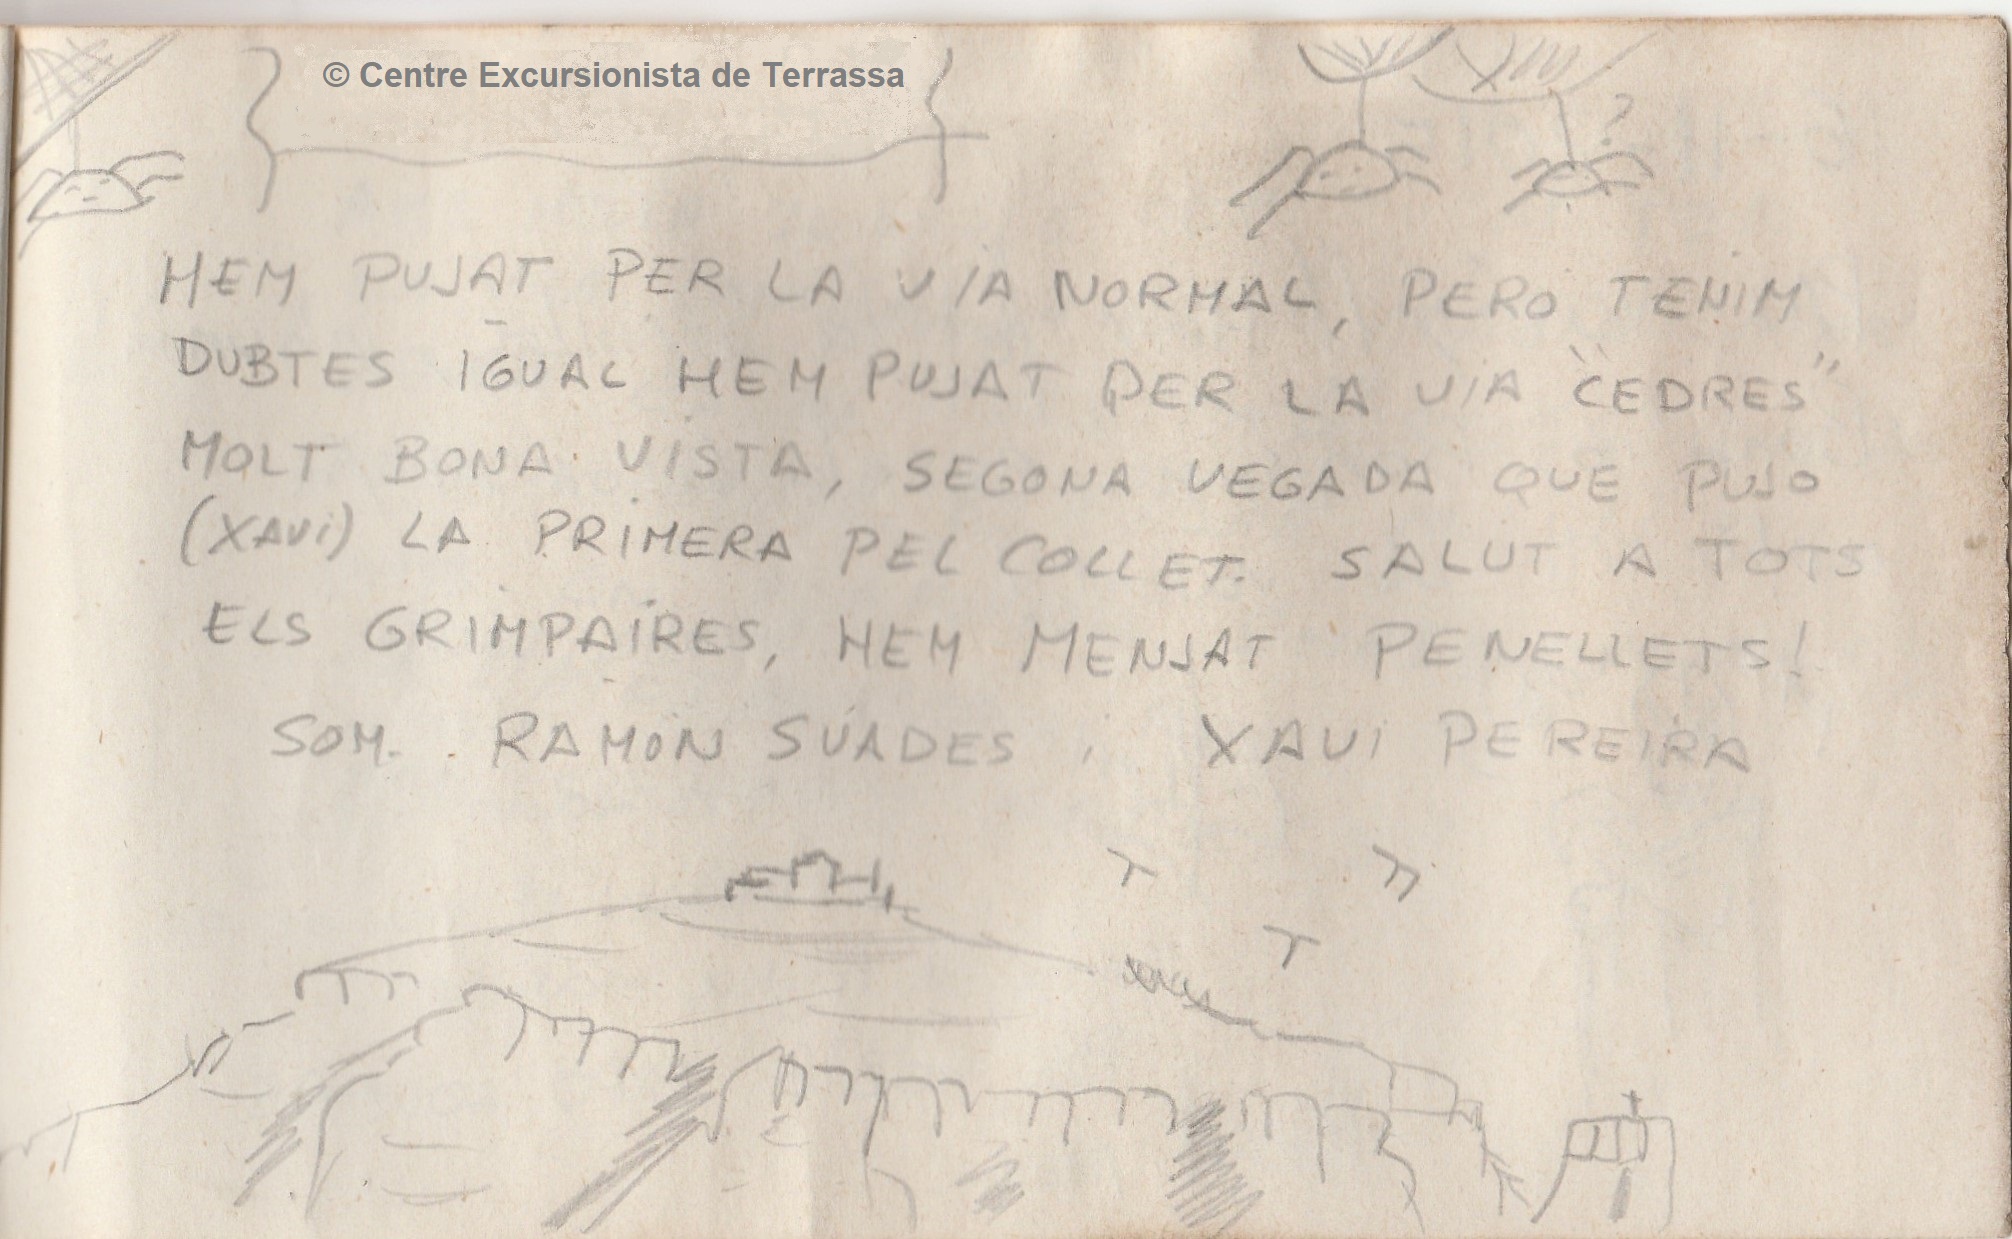 © Centre Excursionista de Terrassa
?
HEM PUJAT PER LA VIA NORMAL, PERO TENIM
DUBTES IGUAL HEM PUJAT PER LA VIA "CEDRES"
MOLT BONA VISTA, SEGONA VEGADA QUE PUJO
(XAVI) LA PRIMERA PEL COLLET. SALUT A TOTS
ELS GRIMPAIRES, HEM MENJAT PENELLETS!
SOM. RAMON SUADES i XAVI PEREIRA